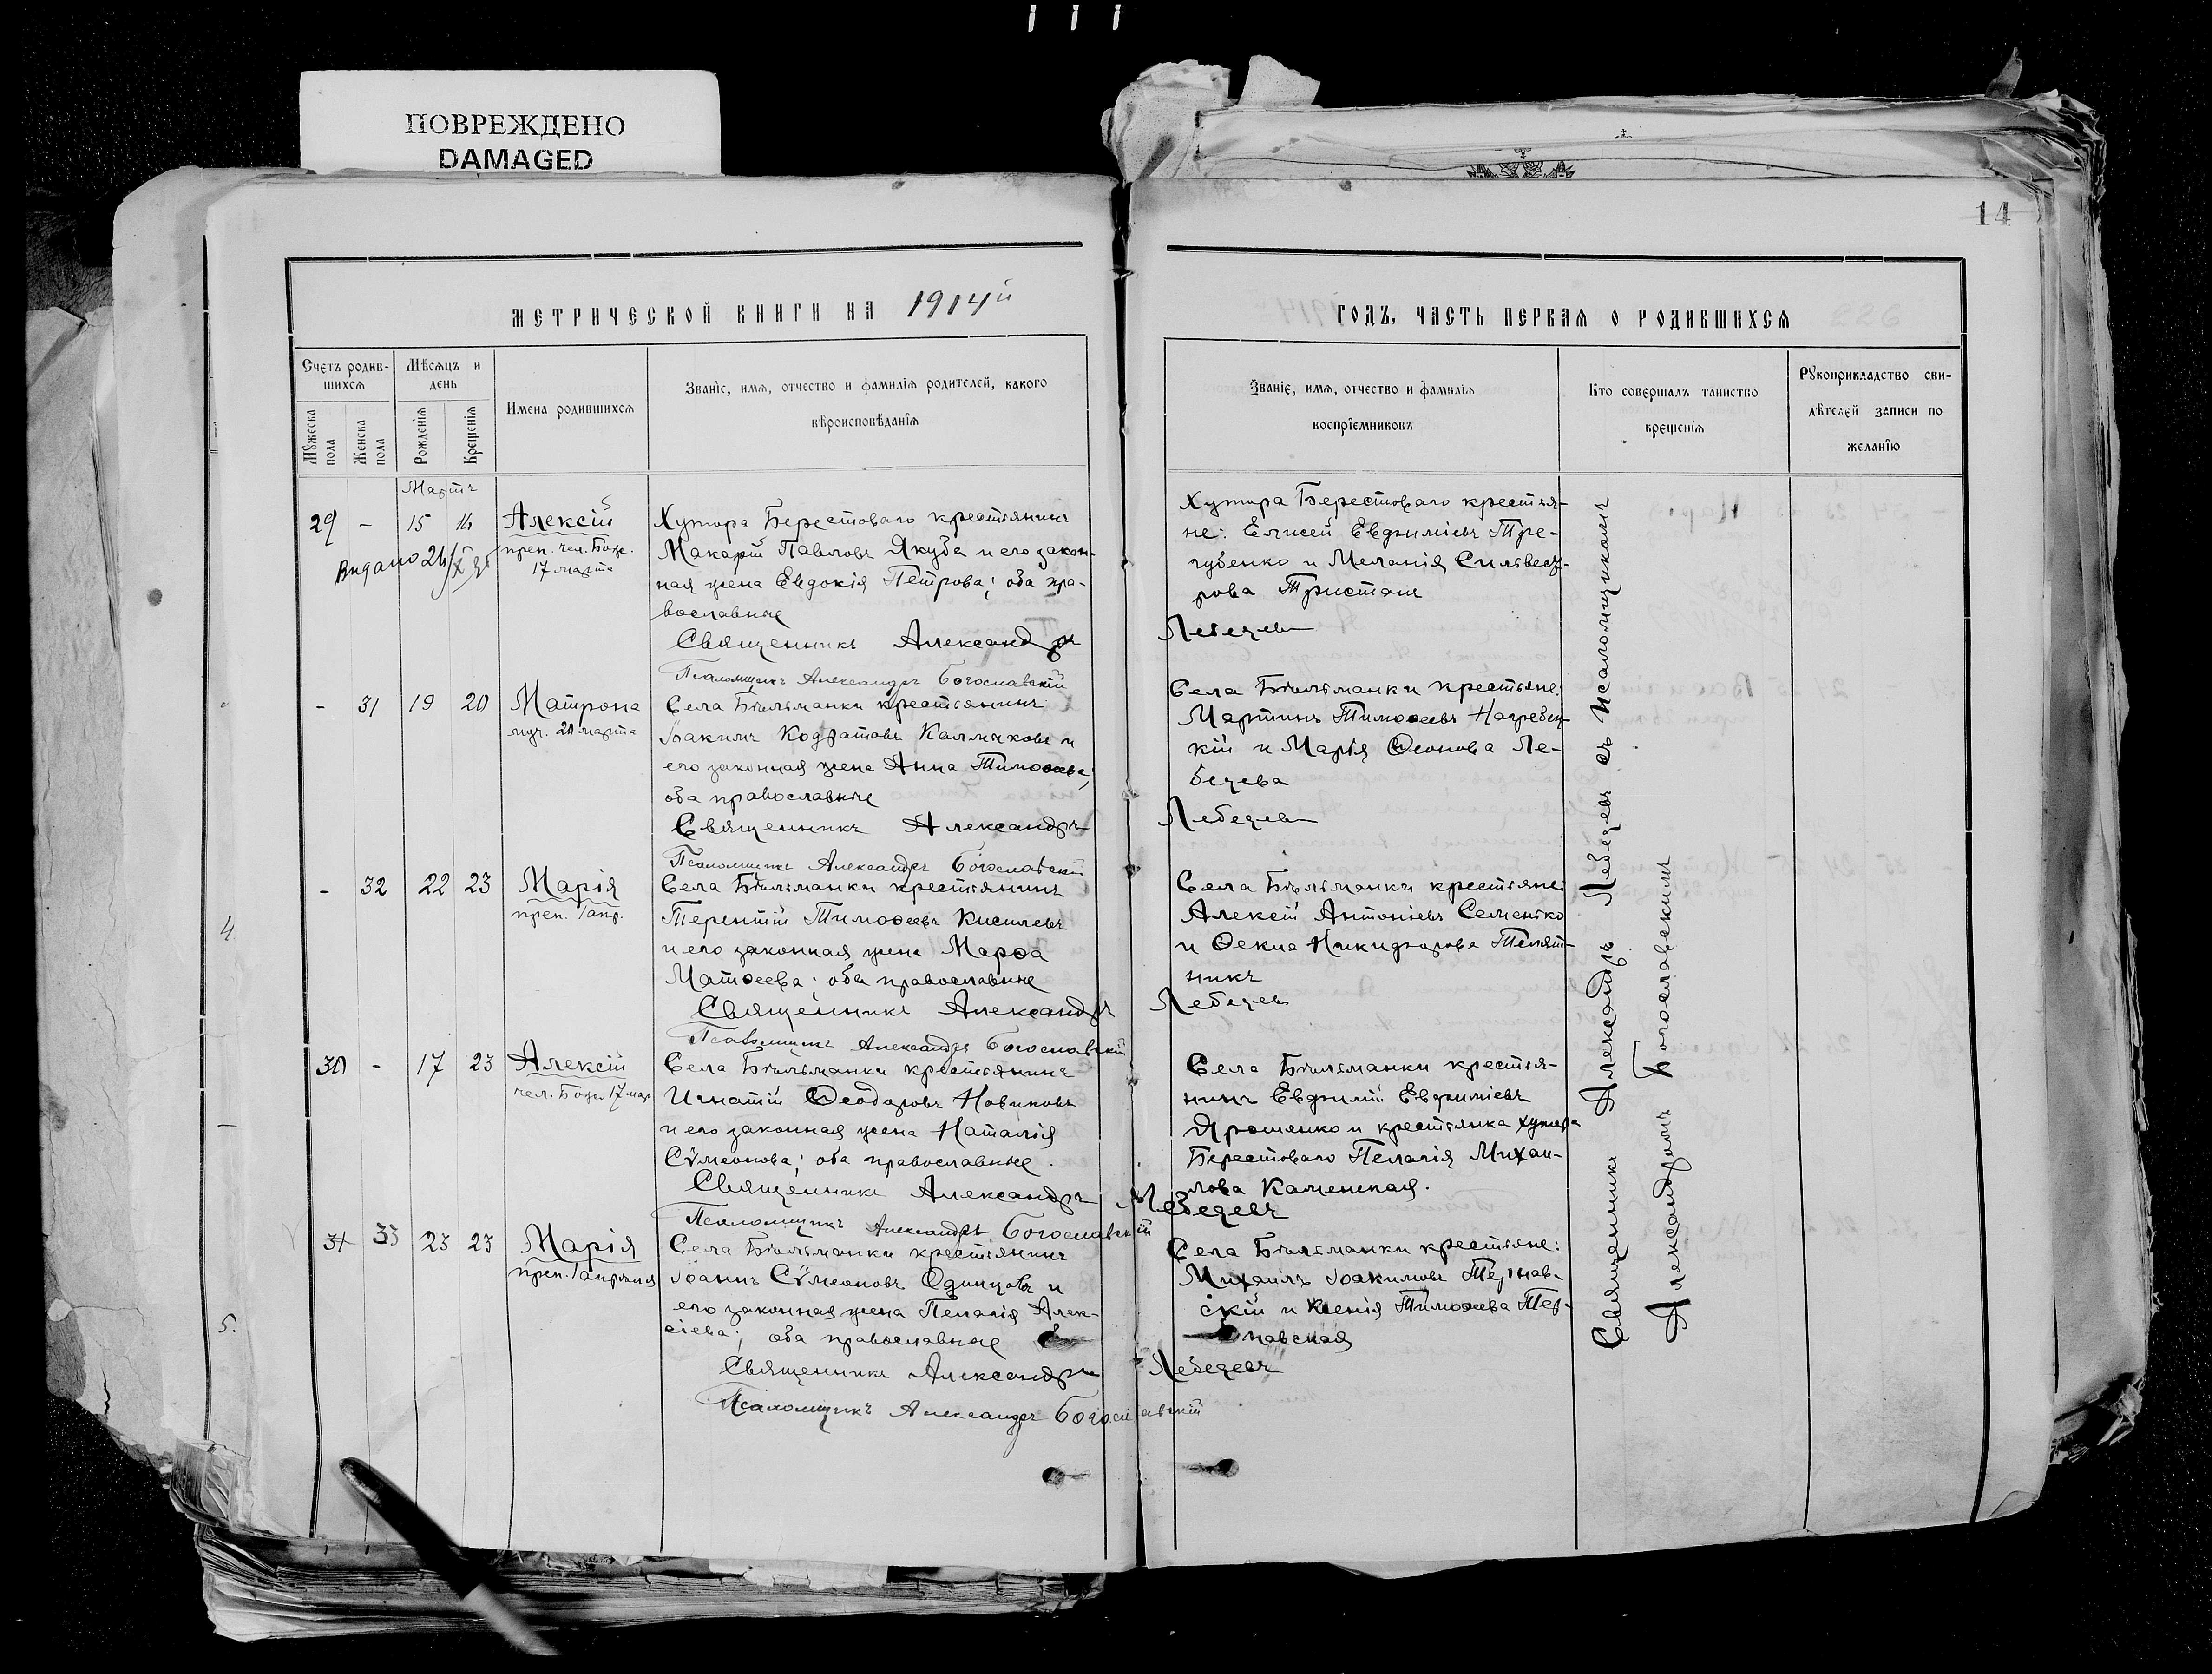 ПОВРЕЖДЕНО
DAMAGED
14
МЕТРИЧЕСКОЙ КНИГИ НА 1914й
Счетъ родив-
шихся
Мѣсяцъ и
день
Мужеска
пола
Женска
пола
Рожденія
Крещенія
Имена родившихся
Званіе, имя, отчество и фамилія родителей, какого
вѣроисповѣданія
Мартъ
29 - 15 16 Алексій
преп. чел. Бож.
17 марта
Хутора Берестоваго крестьянинъ
Макарій Павловъ Якуба и его закон-
ная жена Евдокія Петрова; оба пра-
вославные
Священникъ Александръ
Псаломщикъ Александръ Богославскій
- 31 19 20 Матрона
муч. 20 марта
Села Бѣльманки крестьянинъ
Іоакимъ Кодратовъ Калмыковъ и
его законная жена Анна Тимоѳеева;
оба православные
Священникъ Александръ
Псаломщикъ Александръ Богославскій
- 32 22 23 Марія
преп. Гапр.
Села Бѣльманки крестьянинъ
Терентій Тимоѳеевъ Киселевъ
и его законная жена Марѳа
Матѳеева; оба православные
Священникъ Александръ
Псаломщикъ Александръ Богославскій
30 - 17 23 Алексій
чел. Бож. 17 мар
Села Бѣльманки крестьянинъ
Игнатій Ѳеодоровъ Новиковъ
и его законная жена Наталія
Сѵмеонова; оба православные.
Священникъ Александръ
Псаломщикъ Александръ Богославскій
31 33 23 23 Марія
Села Бѣльманки крестьянинъ
Іоаннъ Сѵмеоновъ Одинцовъ и
его законная жена Пелагія Алек-
сіева; оба православные
Священникъ Александръ
Псаломщикъ Александръ Богославскій
4
5.
ГОДЪ, ЧАСТЬ ПЕРВАЯ О РОДИВШИХСЯ
Званіе, имя, отчество и фамилія
воспріемниковъ
Кто совершалъ таинство
крещенія
Рукоприкладство сви-
дѣтелей записи по
желанію
Хутора Берестоваго крестья-
не: Елисей Евфиміевъ Тре-
губенко и Меланія Сильвест-
рова Тристанъ
Лебедевъ
Села Бѣльманки крестьяне:
Мартинъ Тимоѳеевъ Нагребец-
кій и Марія Ѳеонова Ле-
бедева
Лебедевъ
Села Бѣльманки крестьяне:
Алексій Антоніевъ Семенко
и Ѳекла Никифорова Телят-
никъ
Лебедевъ
Села Бѣльманки крестья-
нинъ Евфимій Евфиміевъ
Ярошенко и крестьянка хутора
Берестоваго Пелагія Михаи-
лова Каменская.
Лебедевъ
Села Бѣльманки крестьяне:
Михаилъ Іоакимовъ Тернав-
скій и Ксенія Тимоѳеева Тер-
навская
Лебедевъ
Священникъ Александръ Лебедевъ съ Псаломщикомъ
Александромъ Богославскимъ